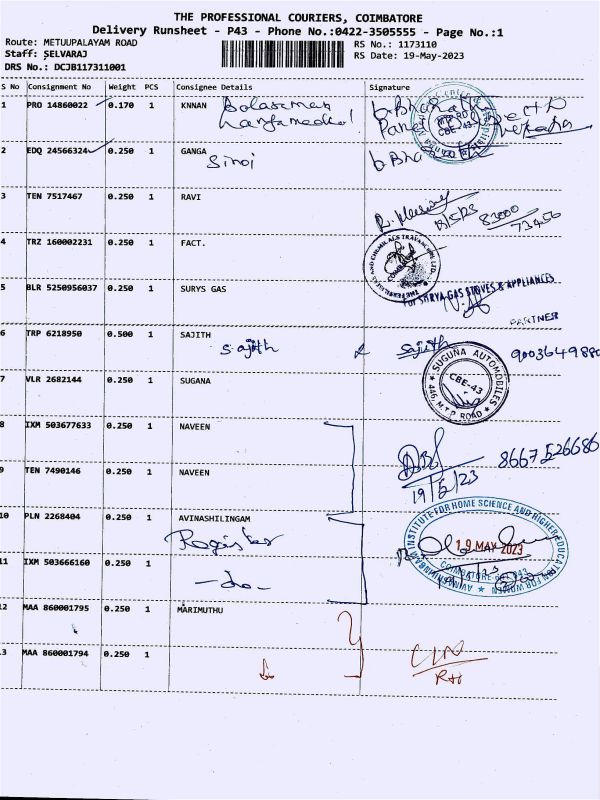 THE PROFESSIONAL COURIERS, COIMBATORE
Delivery Runsheet - P43 - Phone No.:0422-3505555 - Page No.:1
Route: METUUPALAYAM ROAD
RS No.: 1173110
Staff: SELVARAJ
RS Date: 19-May-2023
DRS No.: DCJB117311001
S No Consignment No Weight PCS Consignee Details Signature
1 PRO 14860022 0.170 1 KNNAN
2 EDQ 24566324 0.250 1 GANGA
3 TEN 7517467 0.250 1 RAVI
83000
73456
4 TRZ 160002231 0.250 1 FACT.
5 BLR 5250956037 0.250 1 SURYS GAS
For SURYA GAS STOVES & APPLIANCES
PARTNER
6 TRP 6218950 0.500 1 SAJITH
Sajith Sajith 9003649880
7 VLR 2682144 0.250 1 SUGANA
SUGUNA AUTOMOBILES
CBE-43
446, M.T.P. ROAD
8 IXM 503677633 0.250 1 NAVEEN
8667526686
9 TEN 7490146 0.250 1 NAVEEN
19/5/23
10 PLN 2268404 0.250 1 AVINASHILINGAM
Register
AVINASHILINGAM INSTITUTE FOR HOME SCIENCE AND HIGHER EDUCATION FOR WOMEN
19 MAY 2023
COIMBATORE-641 043
11 IXM 503666160 0.250 1
-do-
12 MAA 860001795 0.250 1 MARIMUTHU
13 MAA 860001794 0.250 1